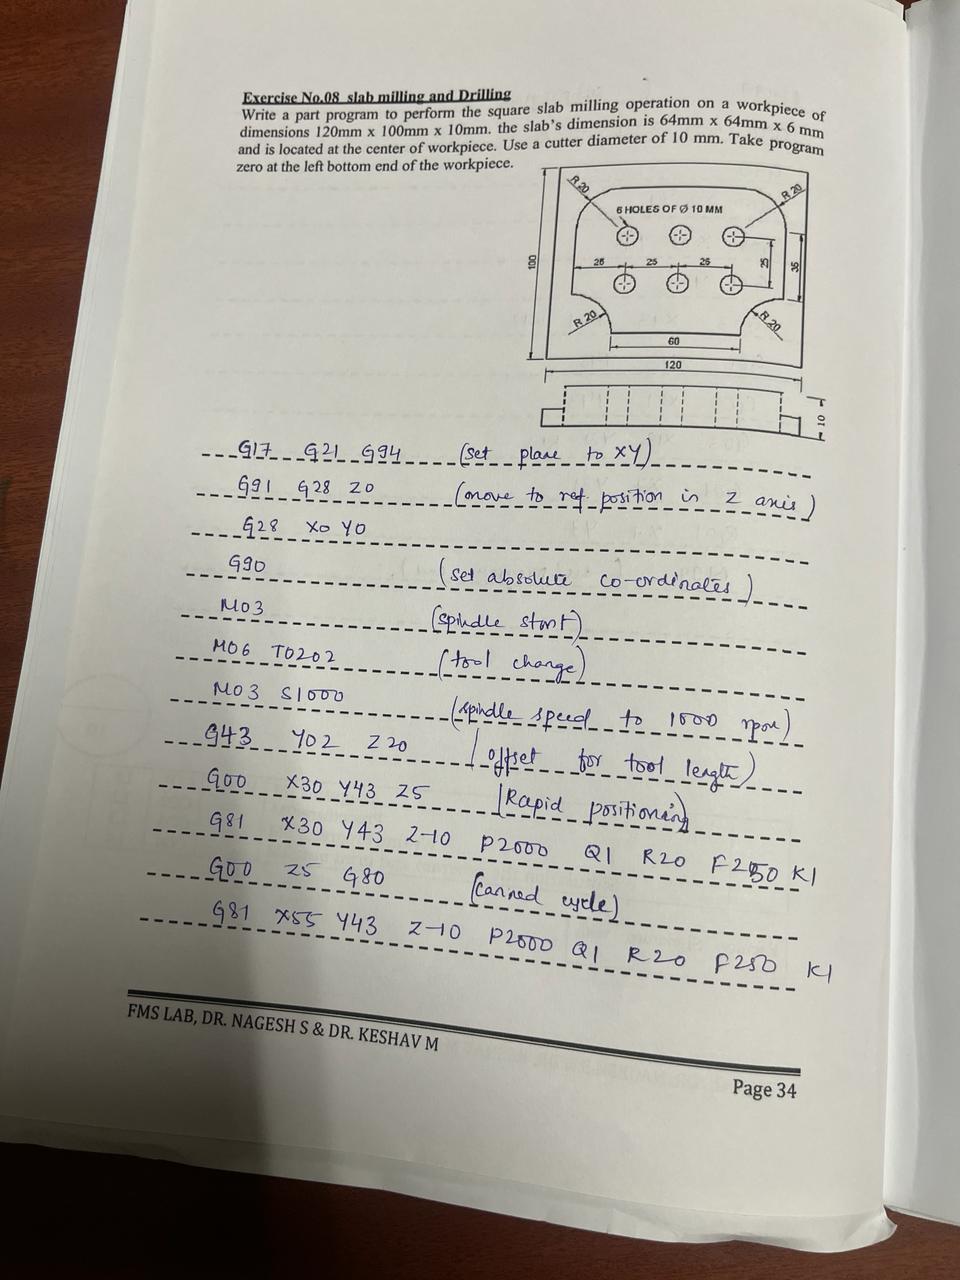 Exercise No.08 slab milling and Drilling
Write a part program to perform the square slab milling operation on a workpiece of
dimensions 120mm x 100mm x 10mm. the slab's dimension is 64mm x 64mm x 6 mm
and is located at the center of workpiece. Use a cutter diameter of 10 mm. Take program
zero at the left bottom end of the workpiece.
R 20
R 20
6 HOLES OF Ø 10 MM
100
25
25
25
35
R 20
R 20
60
120
10
G17 G21 G94 (set plane to XY)
G91 G28 Z0 (move to ref position in Z axis)
G28 X0 Y0
G90 (set absolute co-ordinates)
M03 (spindle start)
M06 T0202 (tool change)
M03 S1000 (spindle speed to 1000 rpm)
G43 Y02 Z20 (offset for tool length)
G00 X30 Y43 Z5 (Rapid positioning)
G81 X30 Y43 Z-10 P2000 Q1 R20 F250 K1
G00 Z5 G80 (Canned cycle)
G81 X55 Y43 Z-10 P2000 Q1 R20 F250 K1
FMS LAB, DR. NAGESH S & DR. KESHAV M
Page 34